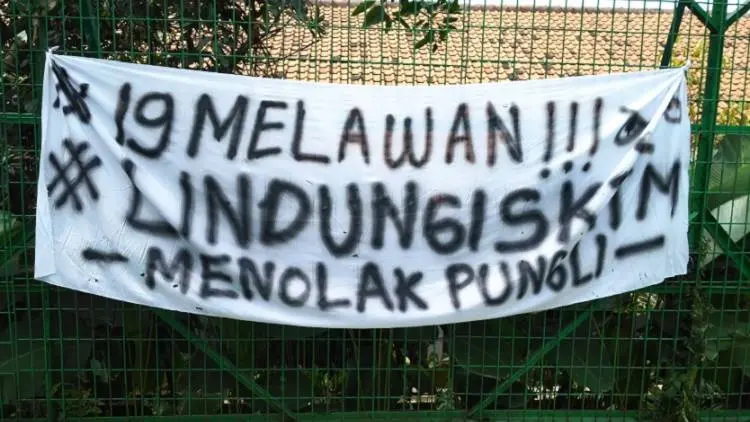 # 19 MELAWAN !!!
# LINDUNGI SKTM
- MENOLAK PUNGLI -